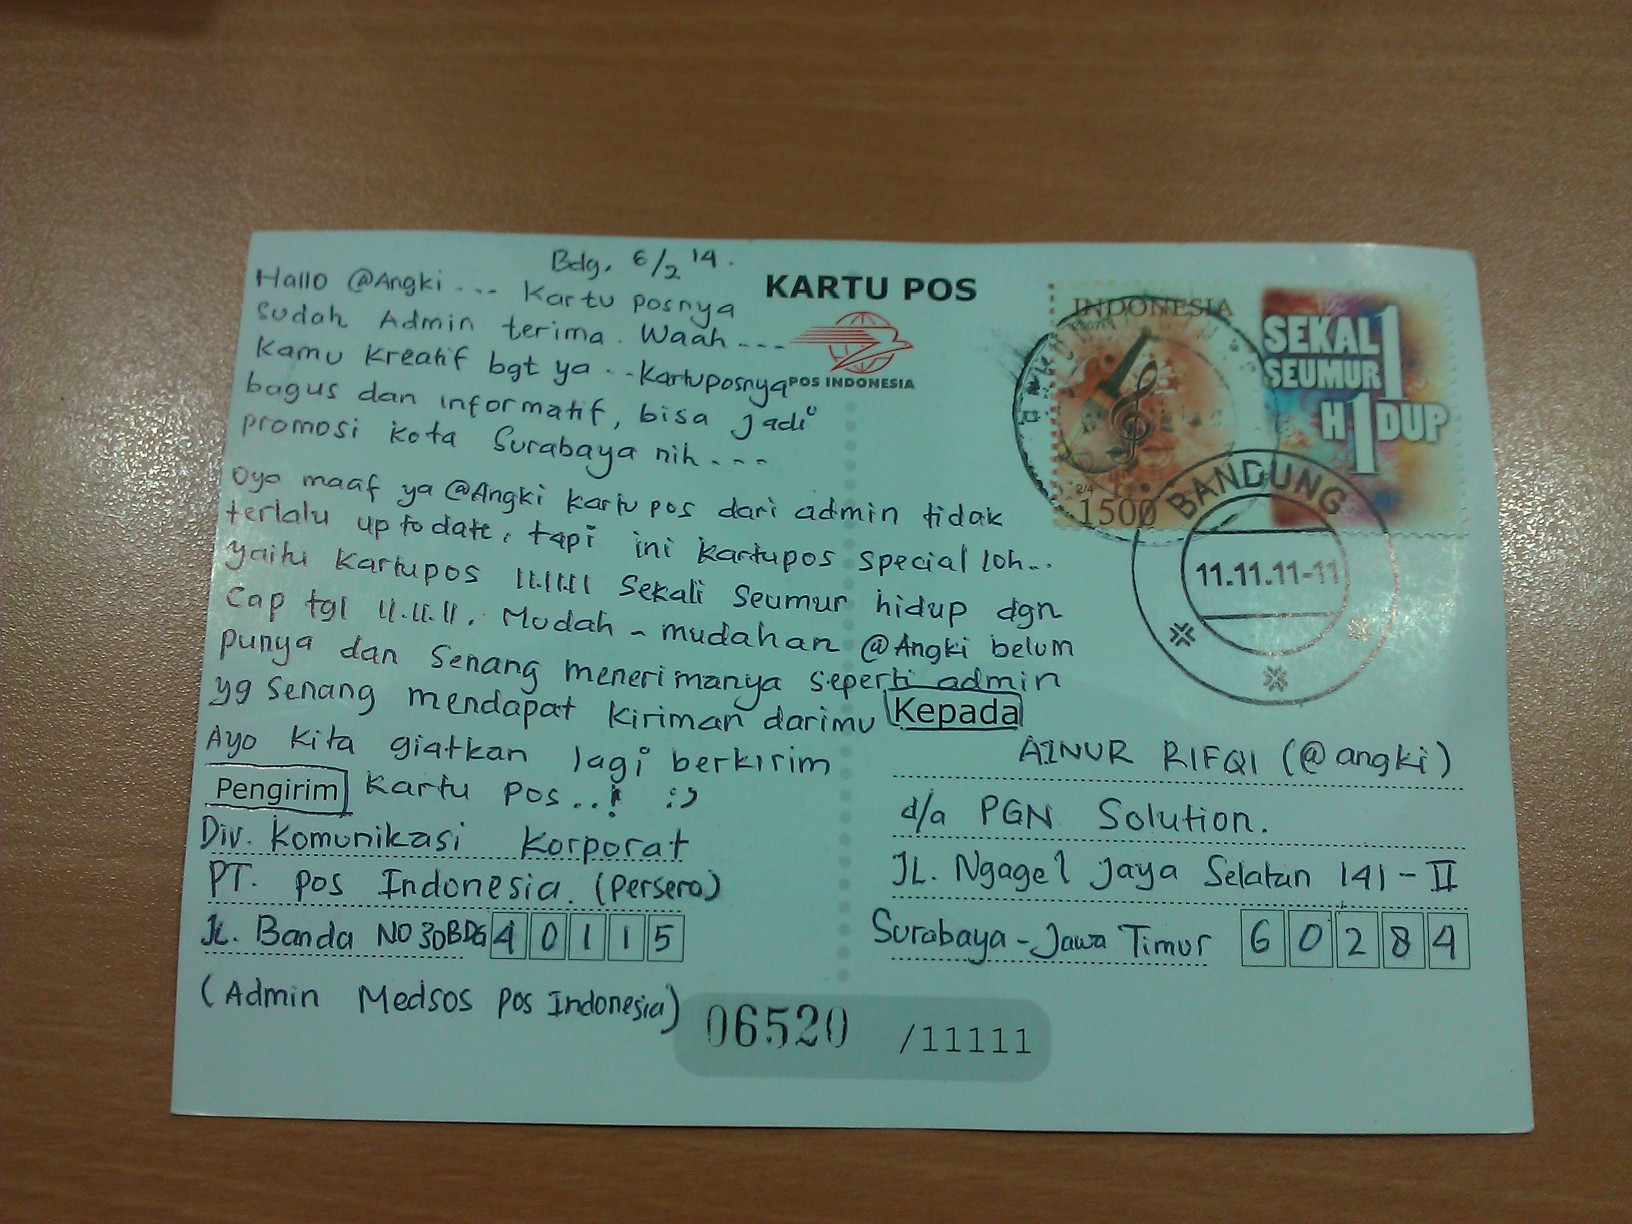 Bdg, 6/2 '14.
Hallo @Angki... Kartu posnya
sudah Admin terima. Waah...
Kamu kreatif bgt ya...kartuposnya
bagus dan informatif, bisa jadi
promosi kota Surabaya nih...
Oya maaf ya @Angki kartu pos dari admin tidak
terlalu up to date, tapi ini kartupos special loh...
yaitu kartupos 11.11.11 Sekali Seumur hidup dgn
Cap tgl 11.11.11. Mudah-mudahan @Angki belum
punya dan senang menerimanya seperti admin
yg senang mendapat kiriman darimu
Ayo kita giatkan lagi berkirim
kartu pos..! :)
Pengirim
Div. Komunikasi Korporat
PT. Pos Indonesia. (Persero)
JL. Banda NO 30 BDG 40115
(Admin Medsos Pos Indonesia)
KARTU POS
POS INDONESIA
INDONESIA
2/4
1500
SEKAL1
SEUMUR
H1DUP
BANDUNG
11.11.11-11
Kepada
AINUR RIFQI (@angki)
d/a PGN Solution.
JL. Ngagel Jaya Selatan 141 - II
Surabaya - Jawa Timur 60284
06520 /11111